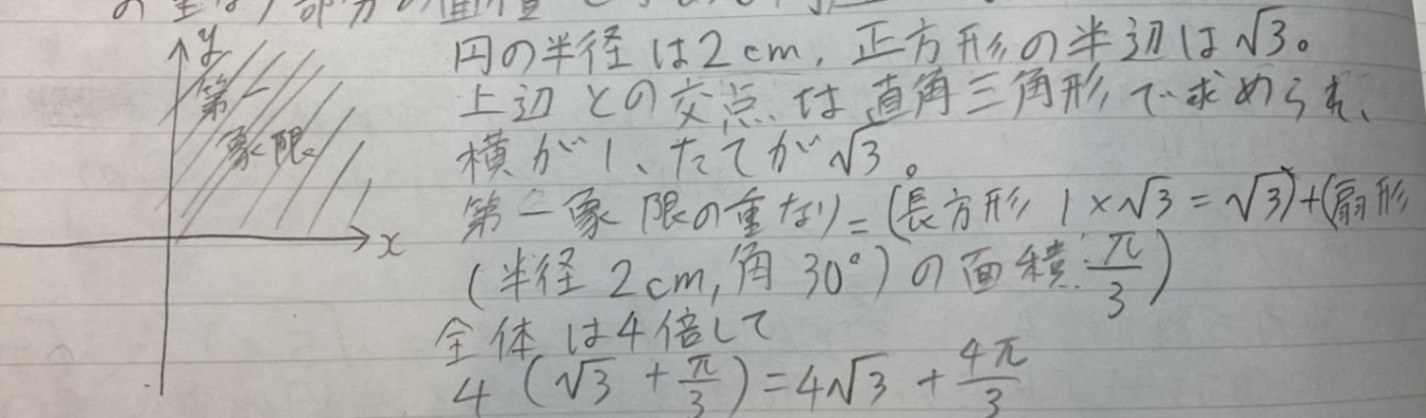 の重なり部分の面積
y
円の半径は2cm,正方形の半辺は√3。
第一
上辺との交点は直角三角形で求められ、
象限
横が1、たてが√3。
第一象限の重なり=(長方形 1×√3=√3)+(扇形
x
(半径 2cm,角 30°)の面積:π/3)
全体は4倍して
4(√3+π/3)=4√3+4π/3